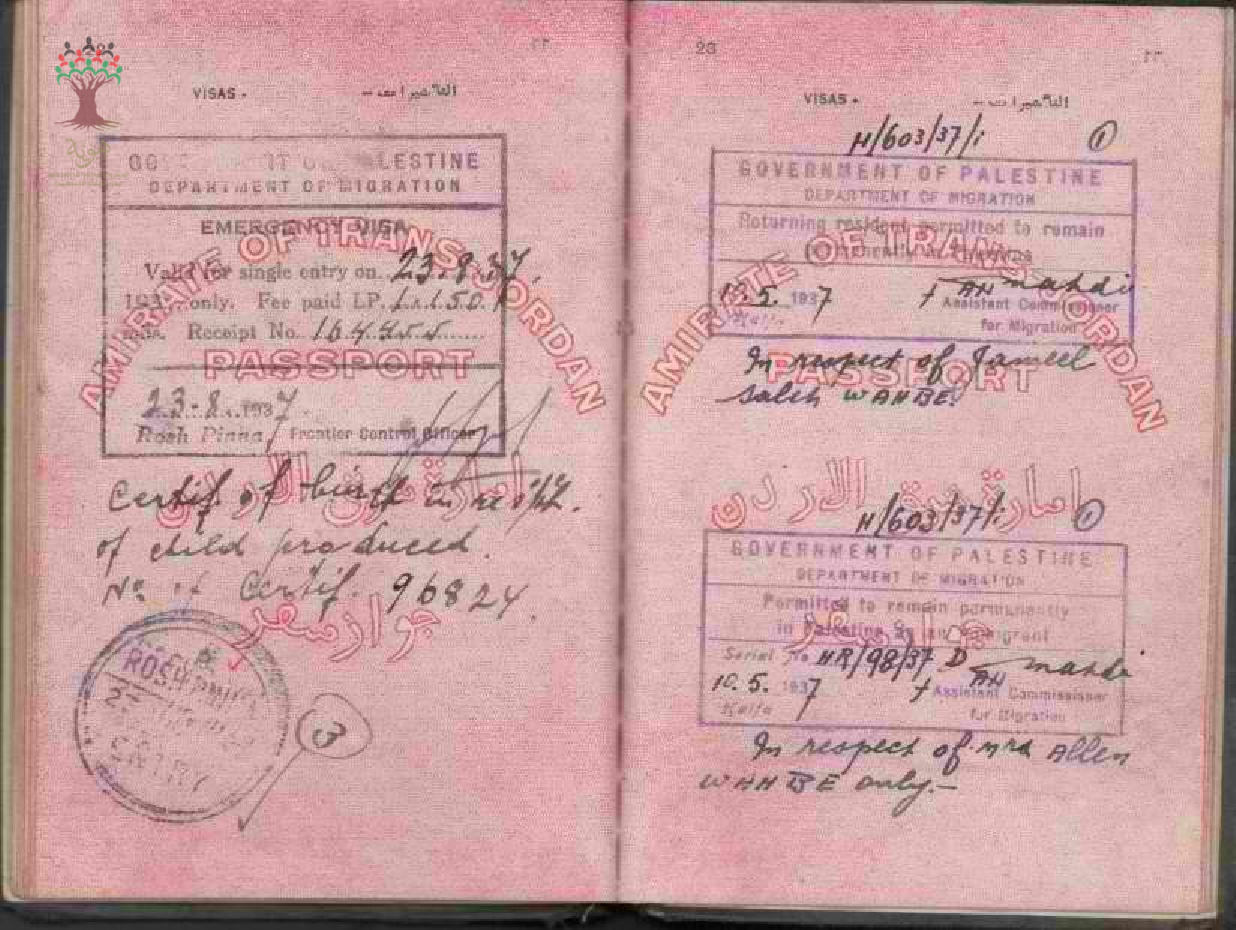 ٢٢
VISAS -
التأشيرات -
GOVERNMENT OF PALESTINE
DEPARTMENT OF MIGRATION
EMERGENCY VISA
Valid for single entry on 23.8.37.
193 only. Fee paid LP.
Receipt No.
AMIRATE OF TRANS JORDAN
PASSPORT
23.8.1937
Rosh Pinna Frontier Control Officer
امارة شرق الاردن
Certif. of birth in resp.
of child produced.
No. of Certif. 96824.
جواز سفر
ROSH PINNA
ENTRY
23
٢٣
VISAS -
التأشيرات -
H/603/37/i 1
GOVERNMENT OF PALESTINE
DEPARTMENT OF MIGRATION
Returning resident permitted to remain
permanently in Palestine
AMIRATE OF TRANS JORDAN
10.5.1937
Haifa
Assistant Commissioner
for Migration
PASSPORT
In respect of Jameel
Saleh WAHBE.
امارة شرق الاردن
H/603/37/i 1
GOVERNMENT OF PALESTINE
DEPARTMENT OF MIGRATION
Permitted to remain permanently
in Palestine as an immigrant
جواز سفر
Serial No HR/98/37 D
10.5.1937
Haifa
Assistant Commissioner
for Migration
In respect of Mrs Allen
WAHBE only.-